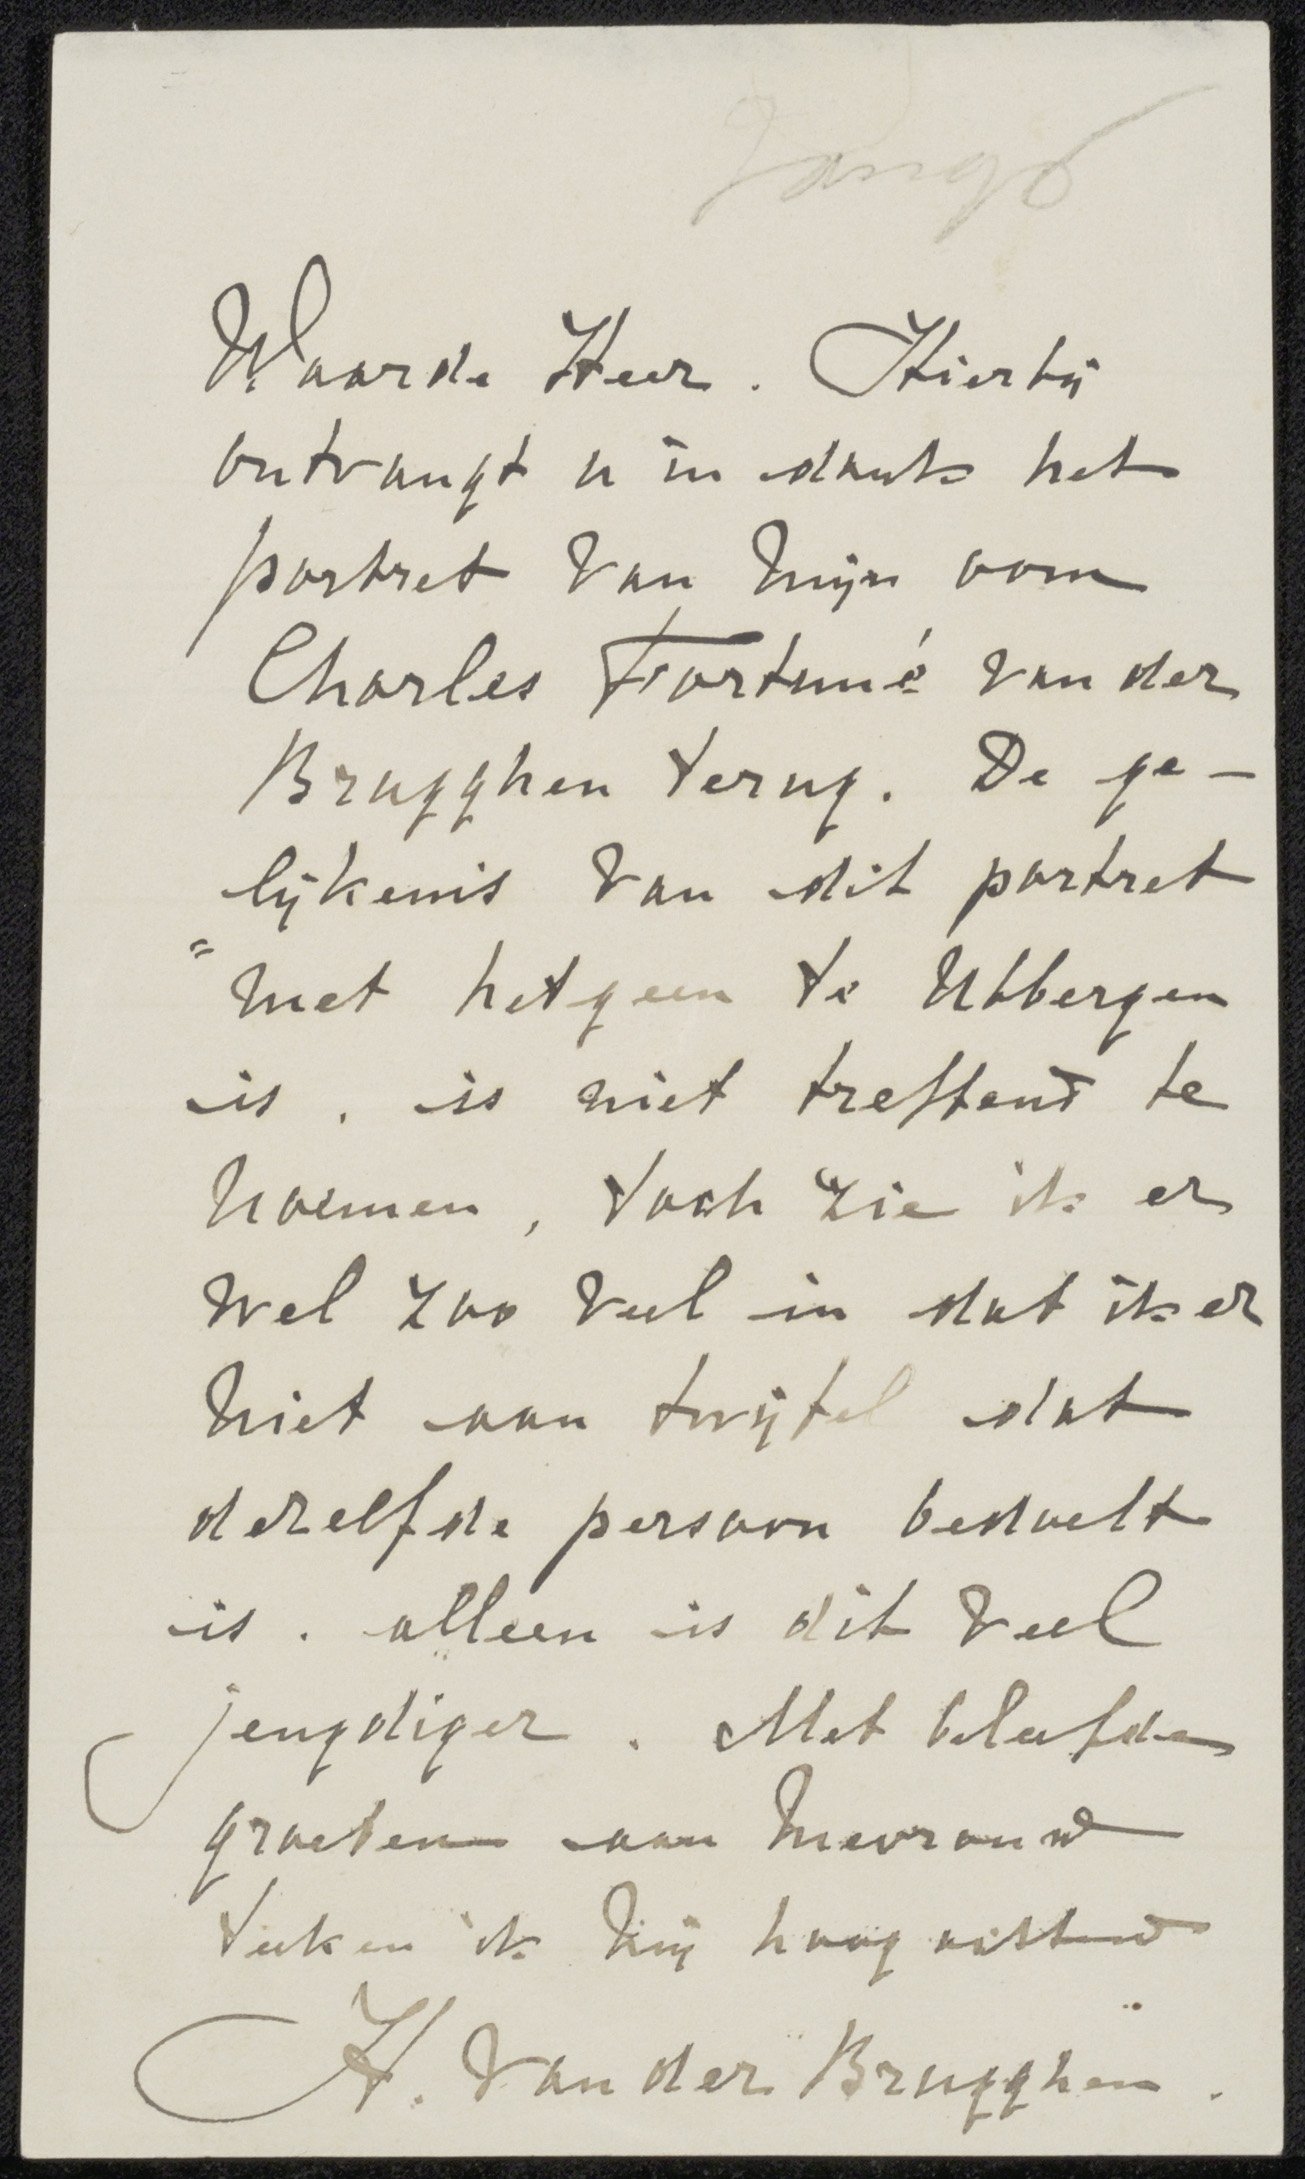 Waarde Heer. Hierbij
ontvangt u in dank het
portret van mijn oom
Charles Fortuné van der
Brugghen terug. De ge-
lijkenis van dit portret
"met hetgeen te Ubbergen
is, is niet treffend te
noemen, toch zie ik er
wel zoo veel in dat ik er
niet aan twijfel dat
dezelfde persoon bedoelt
is. alleen is dit veel
jeugdiger. Met beleefde
groeten aan Mevrouw
teeken ik mij hoogachtend
H. van der Brugghen.